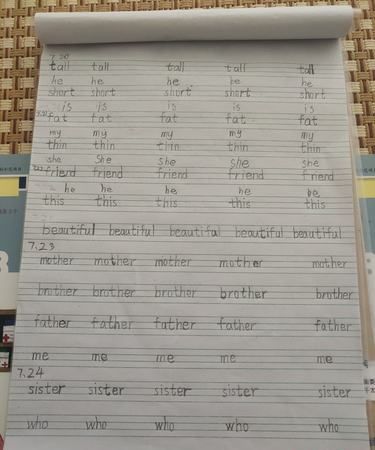 7.20
tall tall tall tall tall
he he he he he
short short short short short
is is is is is
fat fat fat fat fat
my my my my my
thin thin thin thin thin
she She she she she
friend friend friend friend friend
he he he he he
this this this this this
beautiful beautiful beautiful beautiful beautiful
7.23
mother mother mother mother mother
brother brother brother brother brother
father father father father father
me me me me me
7.24
sister sister sister sister sister
who who who who who